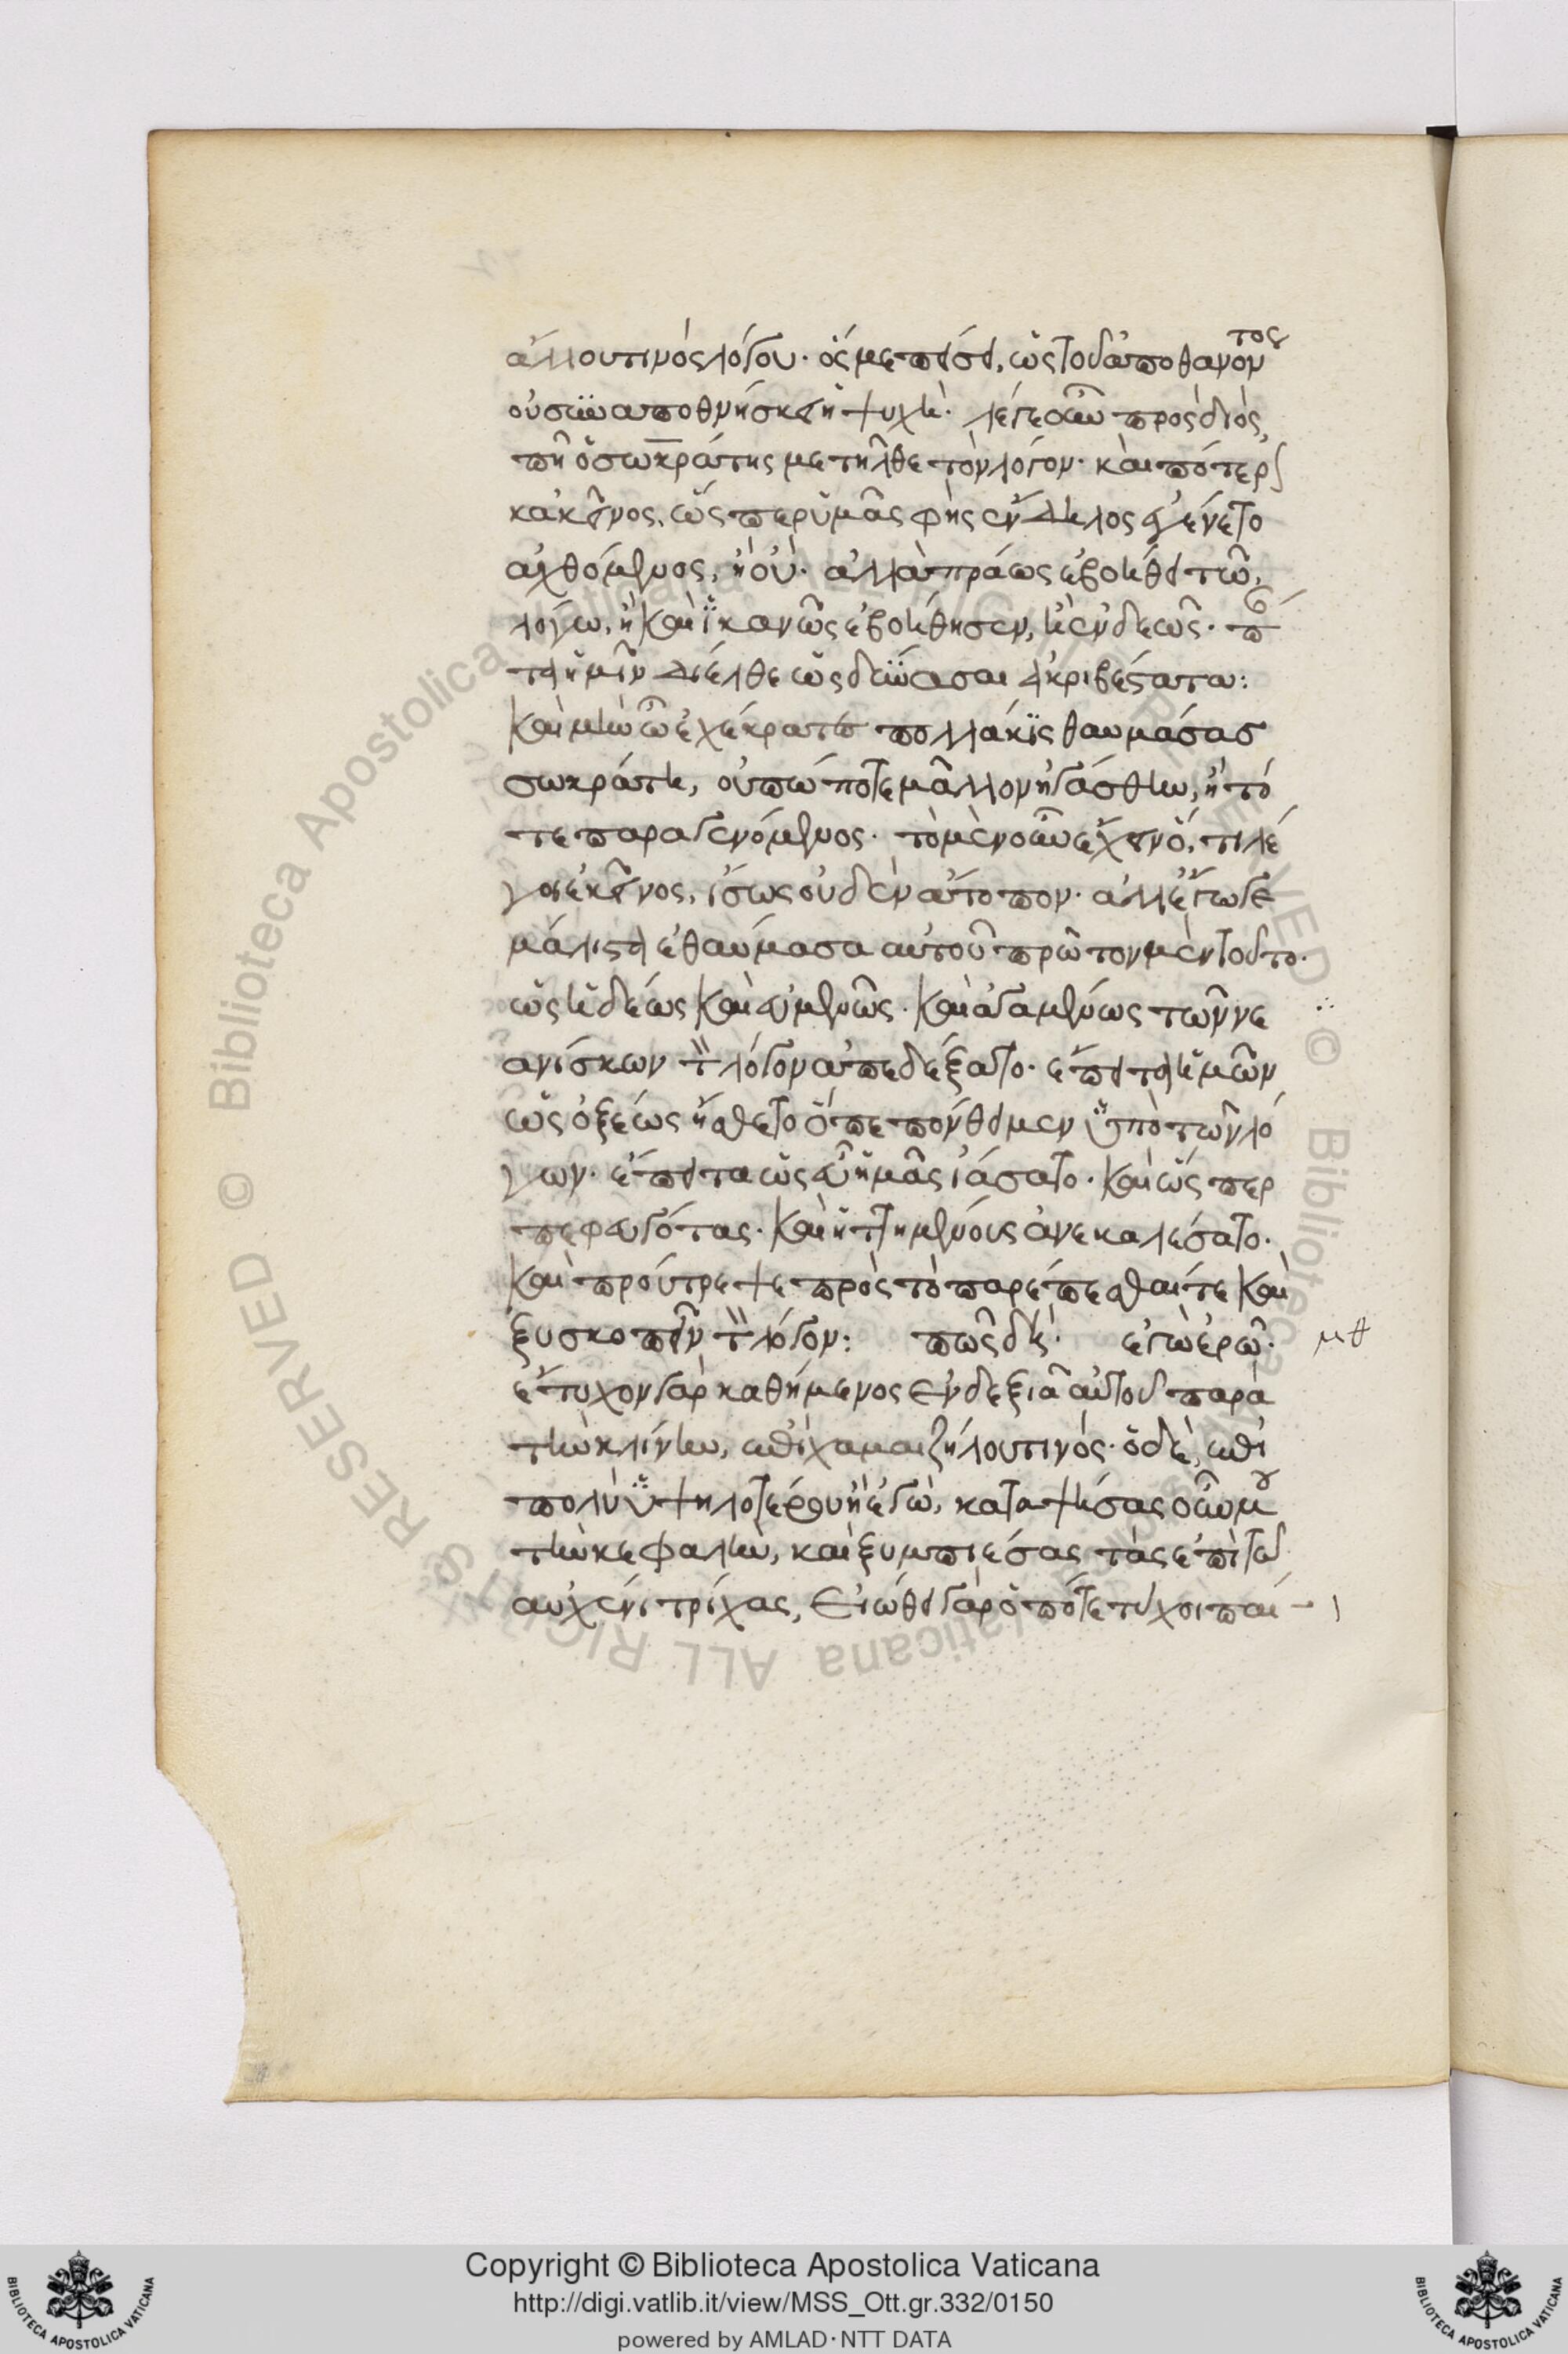 ἄλλου τινὸς λόγου· ὅς με πείσει, ὡς τοῦ ἀποθανόντος
οὐ συναποθνήσκει ἡ ψυχή· λέγε οὖν πρὸς διὸς,
πῆ ὁ σωκράτης μετῆλθε τὸν λόγον· καὶ πότερ
κἀκεῖνος, ὥς περ ὑμᾶς φὴς ἔνδηλος ἐγένετο
ἀχθόμενος, ἢ οὐ· ἀλλὰ πράως ἐβοήθει τῶ
λόγω, ἢ καὶ ἱκανῶς ἐβοήθησεν, ἢ ἐνδεῶς· πάν
τα ἡμῖν δίελθε ὡς δύνασαι ἀκριβέστατα:
καὶ μὴν ὦ ἐχέκρατες πολλάκις θαυμάσας
σωκράτη, οὐ πώποτε μᾶλλον ἠγάσθην, ἢ τό
τε παραγενόμενος· τὸ μὲν οὖν ἔχειν ὅ, τι λέ
γοι ἐκεῖνος, ἴσως οὐδὲν ἄτοπον· ἀλλ' ἔγωγε
μάλιστα ἐθαύμασα αὐτοῦ πρῶτον μὲν τοῦτο·
ὡς ἡδέως καὶ εὐμενῶς· καὶ ἀγαμένως τῶν νε
ανίσκων τὸν λόγον ἀπεδέξατο· ἔπειτα ἡμῶν
ὡς ὀξέως ἤσθετο ὃ πεπόνθειμεν ὑπὸ τῶν λό
γων· ἔπειτα ὡς εὖ ἡμᾶς ἰάσατο· καὶ ὥς περ
πεφευγότας· καὶ ἡττημένους ἀνεκαλέσατο·
καὶ προύτρεψε πρὸς τὸ παρέπεσθαί τε καὶ
ξυσκοπεῖν τὸν λόγον: πῶς δή· ἐγὼ ἐρῶ·
ἔτυχον γὰρ καθήμενος ἐν δεξιᾶ αὐτοῦ παρὰ
τὴν κλίνην, ἐπὶ χαμαιζήλου τινός· ὁ δὲ, ἐπὶ
πολὺ ὑψηλοτέρου ἢ ἐγώ, καταψήσας οὖν μου
τὴν κεφαλὴν, καὶ ξυμπιέσας τὰς ἐπὶ τῶ
αὐχένι τρίχας, εἰώθει γὰρ ὁπότε τύχοι παί
Copyright © Biblioteca Apostolica Vaticana
http://digi.vatlib.it/view/MSS_Ott.gr.332/0150
powered by AMLAD·NTT DATA